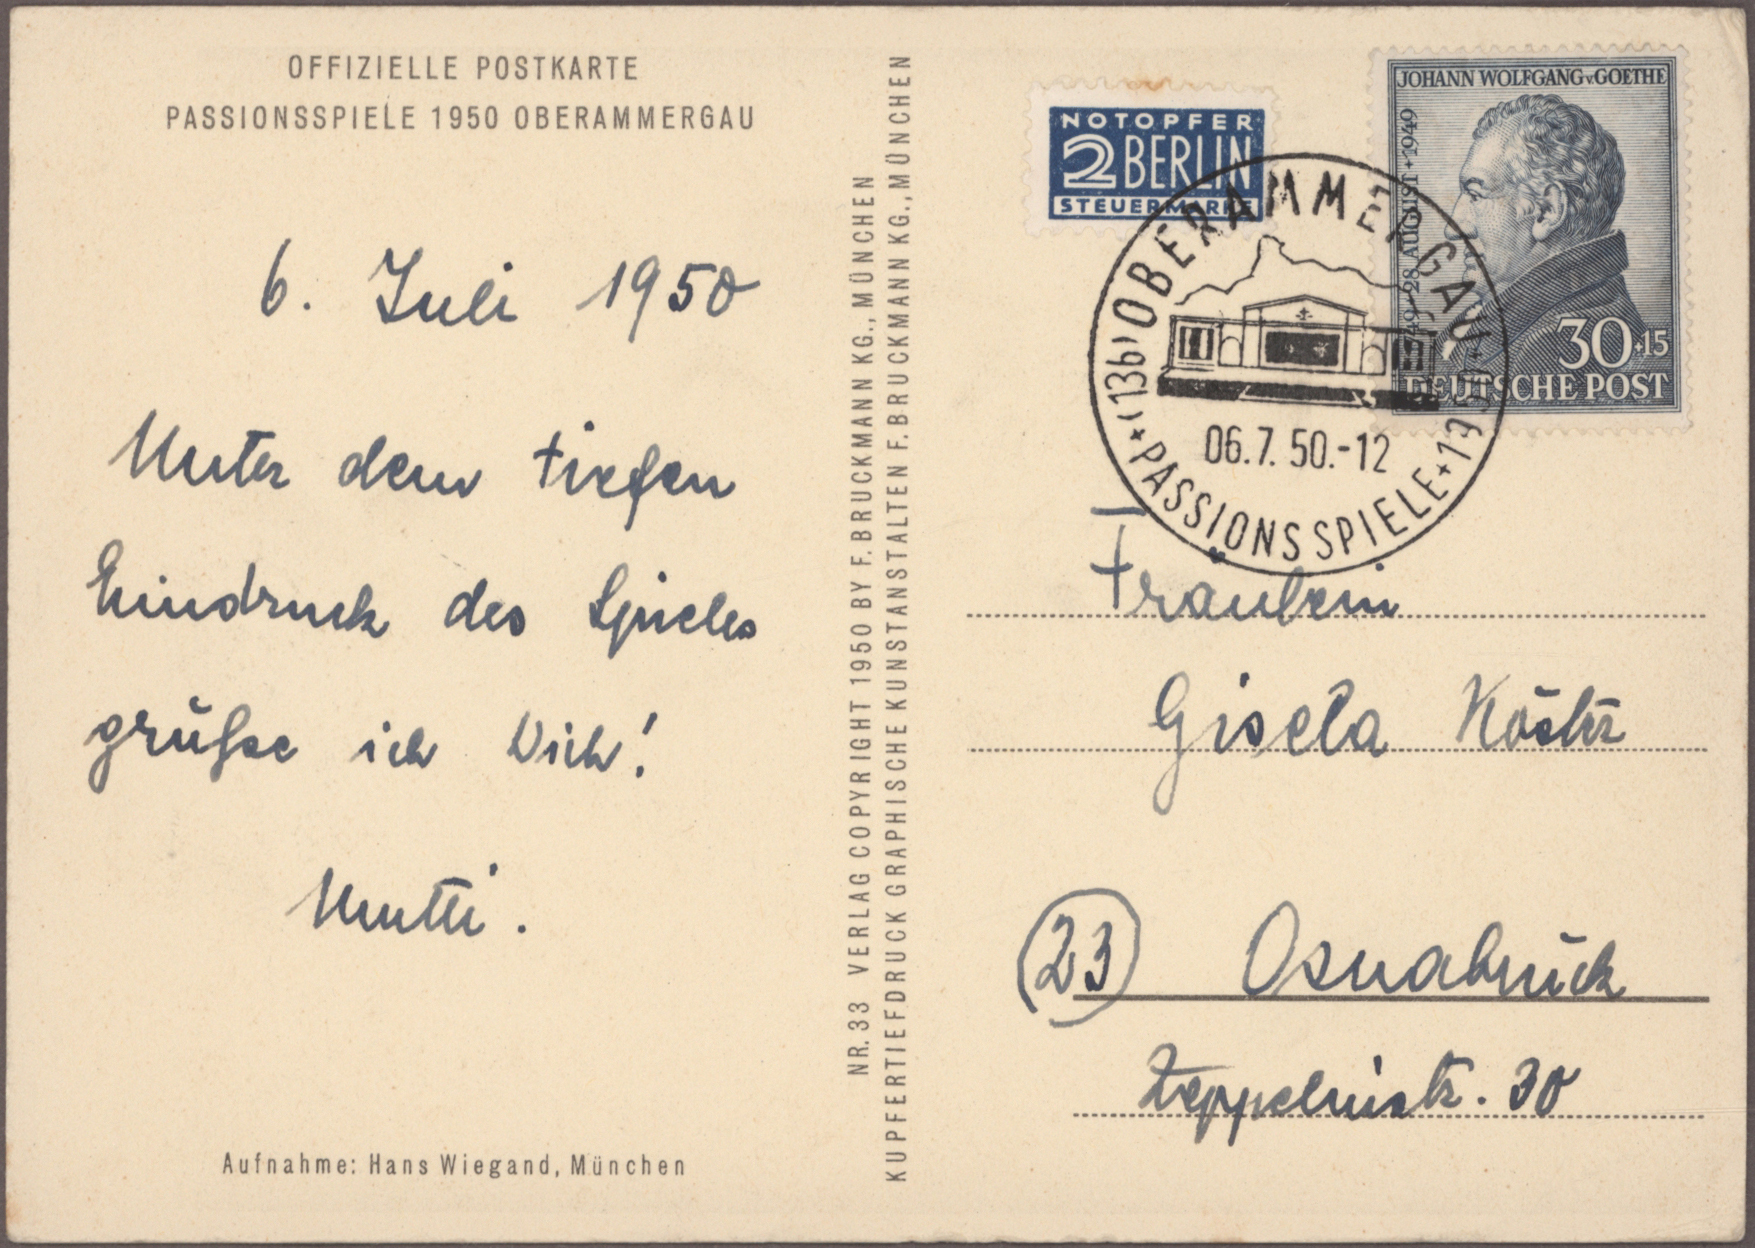 OFFIZIELLE POSTKARTE
PASSIONSSPIELE 1950 OBERAMMERGAU
6. Juli 1950
Unter dem tiefen
Eindruck des Spieles
grüße ich Dich!
Mutti.
Aufnahme: Hans Wiegand, München
NR. 33 VERLAG COPYRIGHT 1950 BY F. BRUCKMANN KG., MÜNCHEN
KUPFERTIEFDRUCK GRAPHISCHE KUNSTANSTALTEN F. BRUCKMANN KG., MÜNCHEN
NOTOPFER
2 BERLIN
STEUERMARKE
JOHANN WOLFGANG v. GOETHE
1749 · 28 AUGUST · 1949
30+15
DEUTSCHE POST
(13b) OBERAMMERGAU
06.7.50.-12
+ PASSIONSSPIELE + 1950
Fräulein
Gisela Köster
(23) Osnabrück
Zeppelinstr. 30